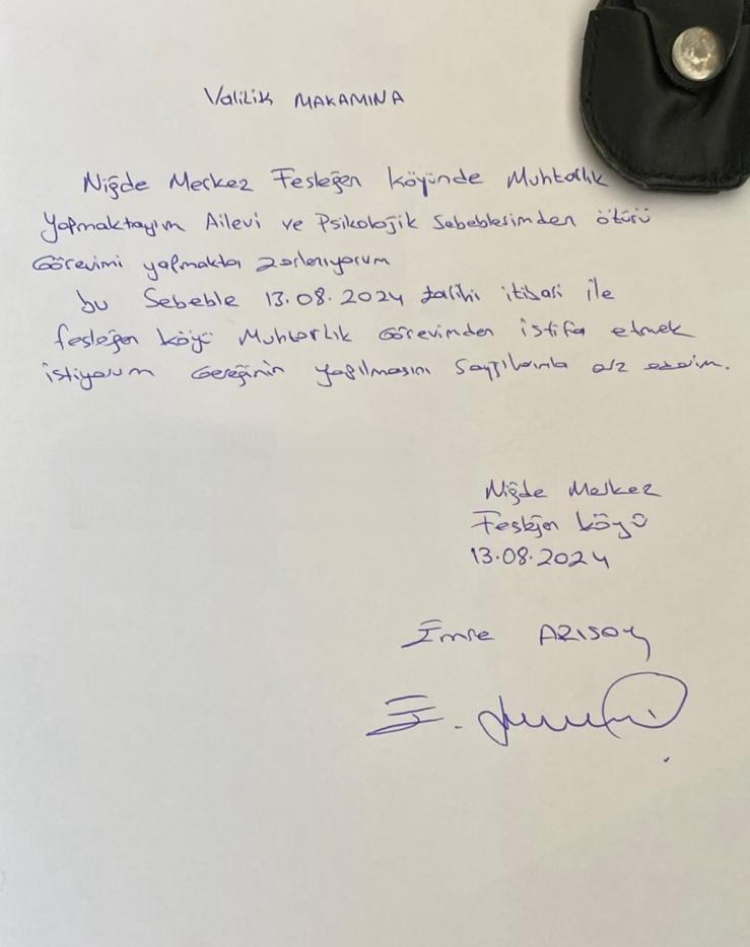 Valilik MAKAMINA
Niğde Merkez Fesleğen köyünde Muhtarlık
yapmaktayım Ailevi ve Psikolojik Sebeblerimden ötürü
Görevimi yapmakta zorlanıyorum
bu Sebeble 13.08.2024 tarihi itibari ile
fesleğen köyü Muhtarlık Görevimden istifa etmek
istiyorum Gereğinin yapılmasını Saygılarımla arz ederim.
Niğde Merkez
Fesleğen köyü
13.08.2024
Emre ARISOY